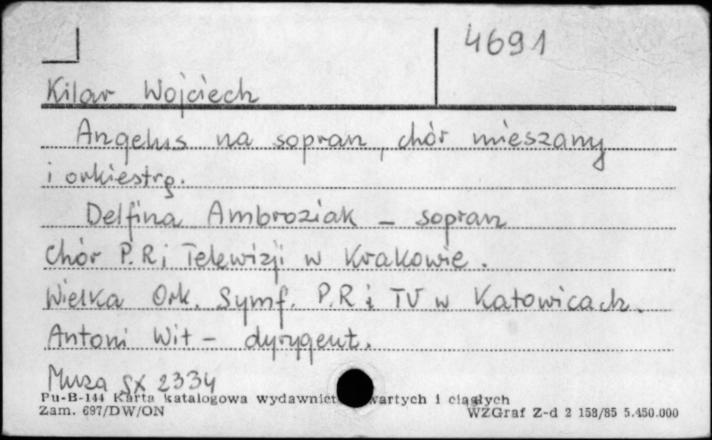 4691
Kilar Wojciech
Angelus na sopran, chór mieszany
i orkiestrę.
Delfina Ambroziak – sopran
Chór P.R i Telewizji w Krakowie.
Wielka Ork. Symf. P.R i TV w Katowicach.
Antoni Wit – dyrygent.
Muza SX 2334
Pu-B-144 Karta katalogowa wydawnict wartych i ciągłych
Zam. 697/DW/ON WZGraf Z-d 2 158/85 5.450.000